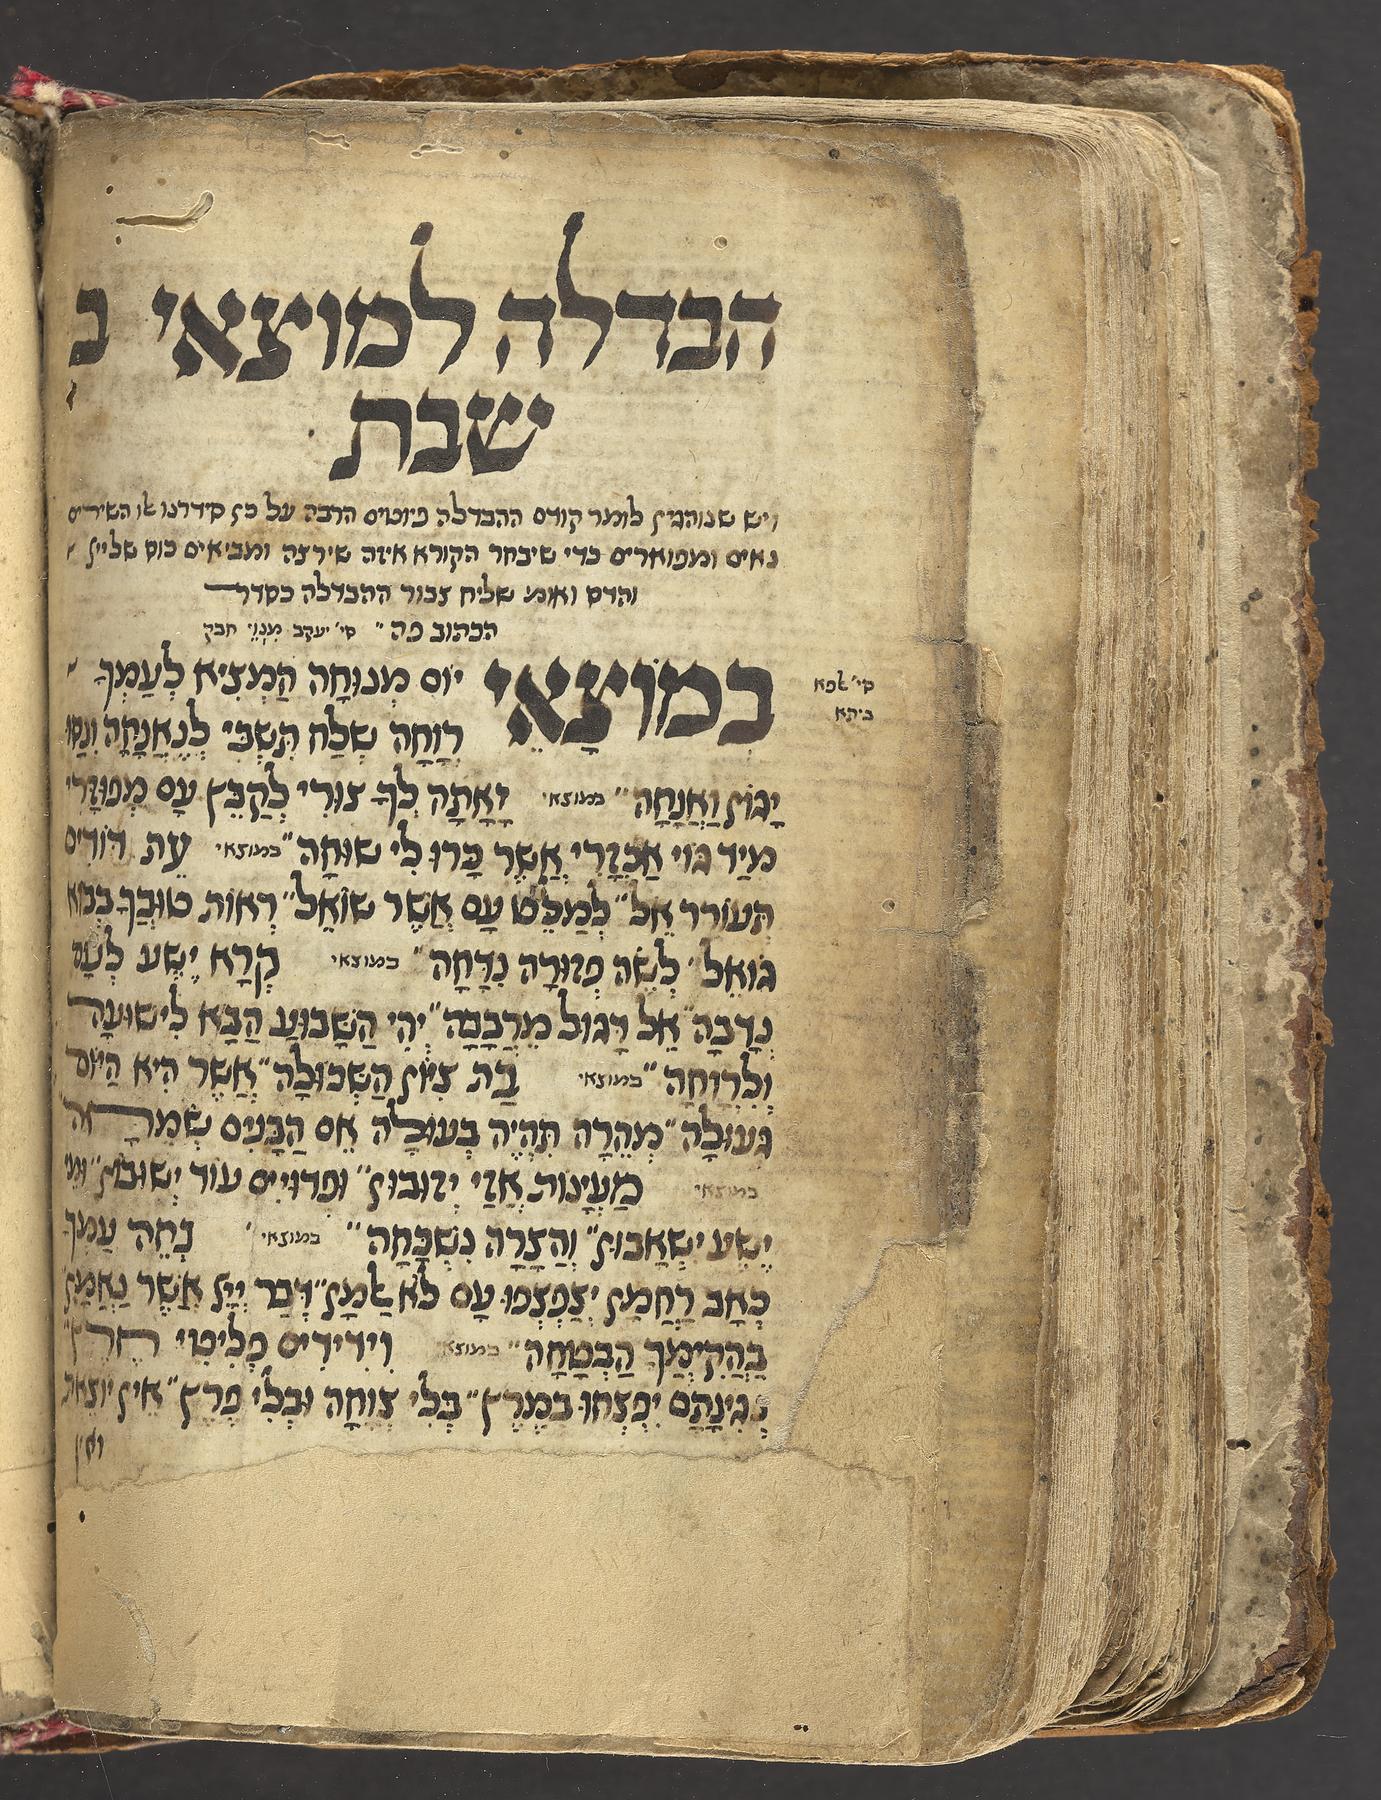 הבדלה למוצאי ב
שבת
ויש שנוהגין לומר קודם ההבדלה פיוטים הרבה על כן סידרנו אלו השירים
נאים ומפוארים כדי שיבחר הקורא איזה שירצה ומביאים כוס של יין
והדס ואומ' שליח צבור ההבדלה כסדר
הכתוב פה״ סי׳ יעקב מנוי חזק
בְמוֹצָאֵי יוֹם מְנוּחָה הַמְצִיא לְעַמְךָ
סי׳ אלפא
רְוָחָה שְׁלַח תִּשְׁבִּי לְנֶאֱנָחָה וְנָסוּ
ביתא
יָגוֹן וַאֲנָחָה״ במוצאי יָאֲתָה לְךָ צוּרִי לְקַבֵּץ עַם מְפוּזָּרִי
מִיַד גּוֹי אַכְזָרִי אֲשֶׁר כָּרוּ לִי שׁוּחָה״ במוצאי עֵת דּוֹדִים
תְּעוֹרֵר אֵל״ לְמַלֵּט עַם אֲשֶׁר שׁוֹאֵל״ רְאוֹת טוּבְךָ בְּבוֹא
גּוֹאֵל״ לְשֶׂה פְזוּרָה נִדָּחָה״ במוצאי קְרָא יֶשַׁע לְעַם
נְדָבָה״ אֵל דָּגוּל מֵרְבָבָה״ יְהִי הַשָּׁבוּעַ הַבָּא לִישׁוּעָה
וְלִרְוָחָה״ במוצאי בַּת צִיּוֹן הַשְּׁכוּלָה״ אֲשֶׁר הִיא הַיּוֹם
גְּעוּלָה״ מְהֵרָה תִּהְיֶה בְעוּלָה אֵם הַבָּנִים שְׂמֵחָה
במוצאי מַעֲיָנוֹת אֲזַי יְזוּבוּן״ וּפְדוּיֵי יי׳ עוֹד יְשׁוּבוּן״ וּמֵי
יֶשַׁע יִשְׁאֲבוּן״ וְהַצָּרָה נִשְׁכָּחָה״ במוצאי נְחֵה עַמְךָ
כְּאָב רַחֲמָן יְצַפְצְפוּ עַם לֹא אַלְמָן״ דְּבַר יְיָ אֲשֶׁר נֶאֱמַן
בַּהֲקִימְךָ הַבְטָחָה״ במוצאי וִידִידִים פְּלִיטֵי חֶרֶץ
נְגִינָתָם יִפְצְחוּ בְמֶרֶץ״ בְּלִי צְוָחָה וּבְלִי פֶרֶץ״ אֵין יוֹצֵאת
ואין